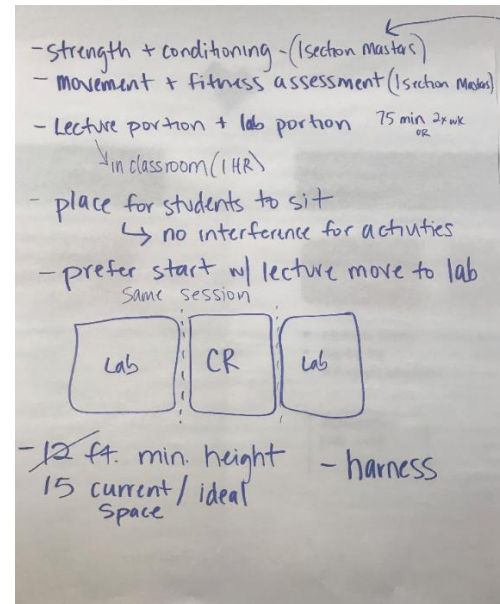 - strength + conditioning - (1 section Masters)
- movement + fitness assessment (1 section Masters)
- Lecture portion + lab portion 75 min 2x wk
OR
in classroom (1 HR)
- place for students to sit
↳ no interference for activities
- prefer start w/ lecture move to lab
same session
Lab CR Lab
- 12 ft. min. height - harness
15 current / ideal
space